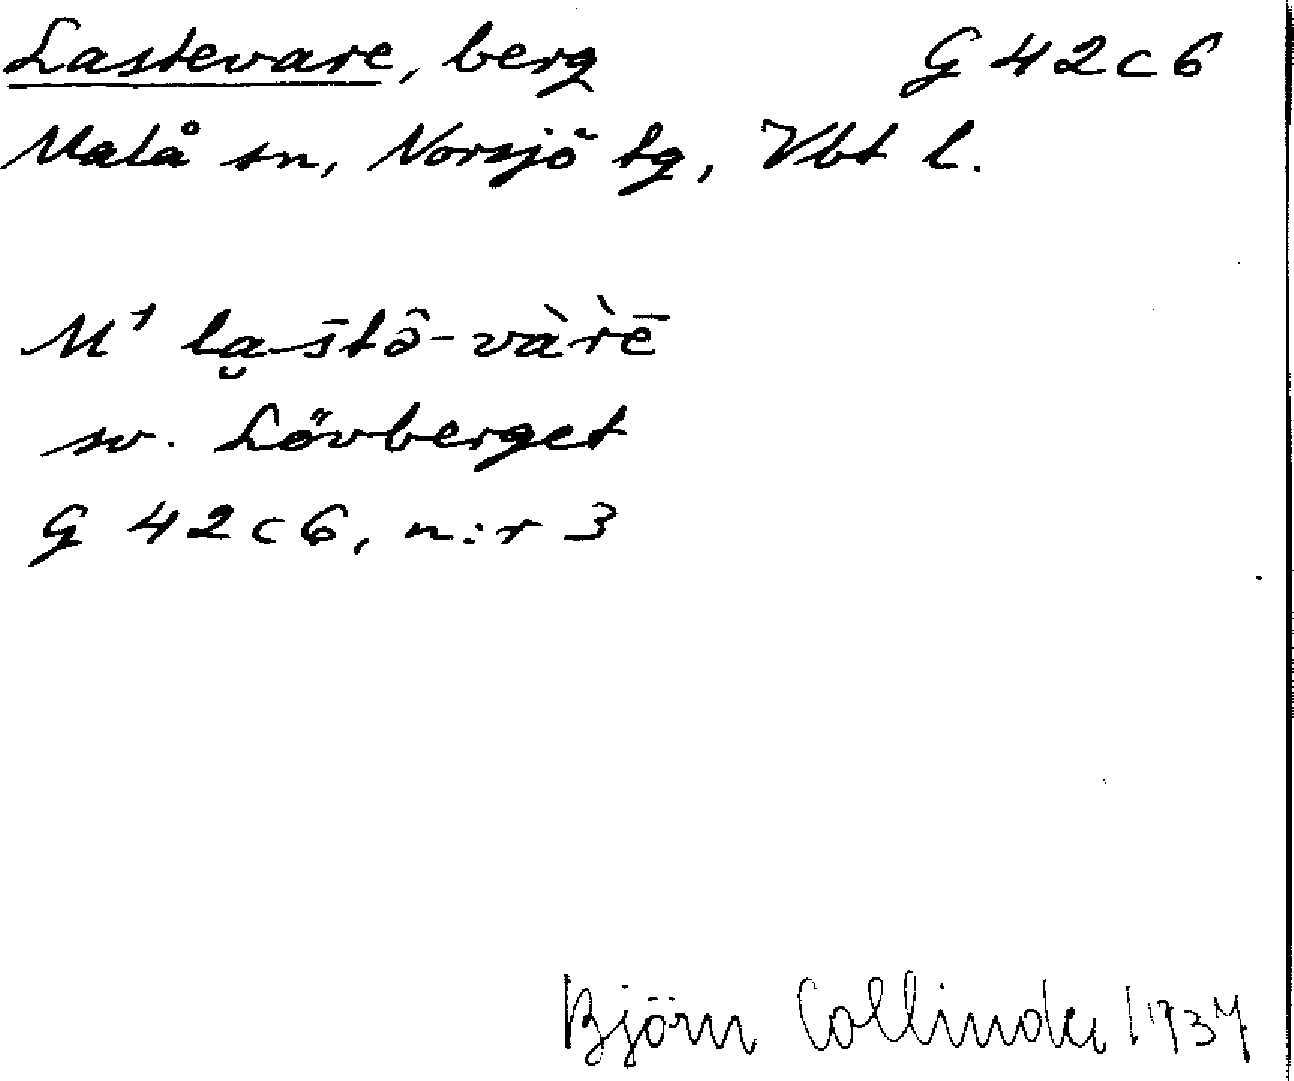 Lastevare, berg G 42c6
Malå sn, Norsjö tg, Vbt l.
M¹ la̮s̄tô-vàr̀ē
sv. Lövberget
G 42c6, n:r 3
Björn Collinder 1937